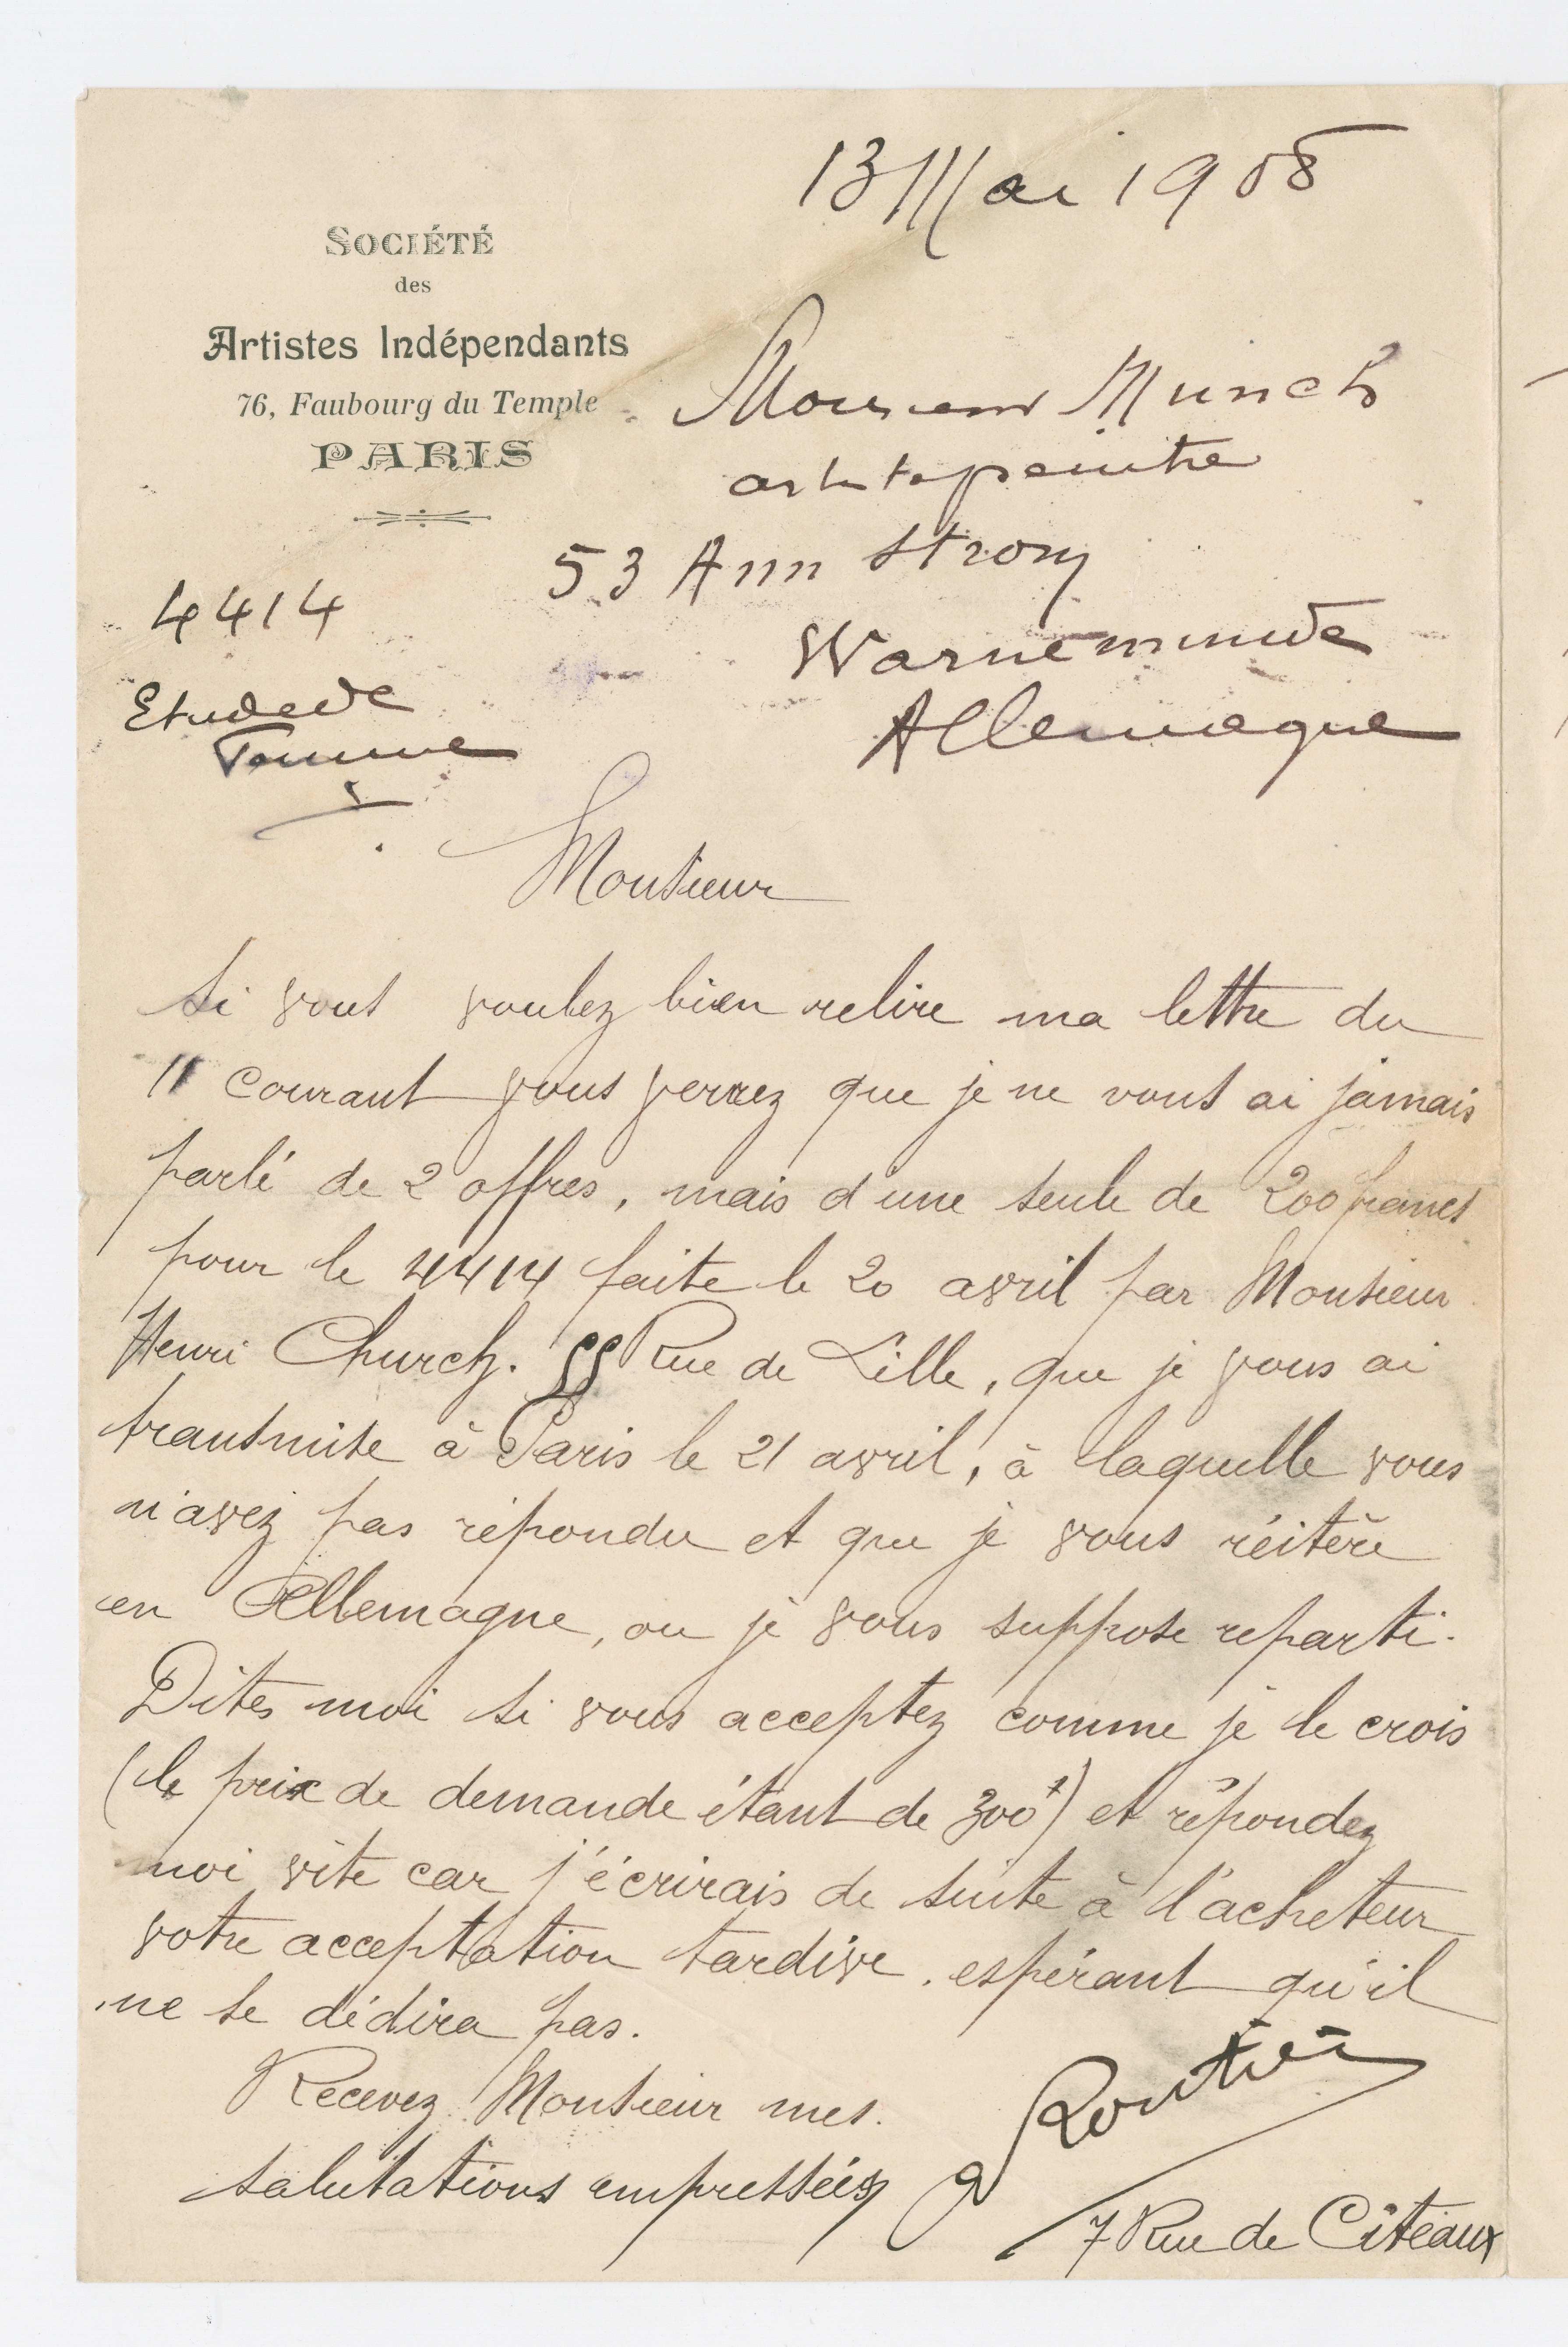 13 Mai 1908
SOCIÉTÉ
des
Artistes Indépendants
76, Faubourg du Temple
PARIS
Monsieur Munch
artiste peintre
53 Ann Strom
Warnemunde
Allemagne
4414
Etude de
Femme
Monsieur
Si vous voulez bien relire ma lettre du
11 courant vous verrez que je ne vous ai jamais
parlé de 2 offres, mais d'une seule de 200 francs
pour le 4414 faite le 20 avril par Monsieur
Henri Church. 55 Rue de Lille, que je vous ai
transmise à Paris le 21 avril, à laquelle vous
n'avez pas répondu et que je vous réitère
en Allemagne, ou je vous suppose reparti.
Dites moi si vous acceptez comme je le crois
(le prix de demande étant de 300f) et répondez
moi vite car j'écrirais de suite à l'acheteur
votre acceptation tardive, espérant qu'il
ne se dédira pas.
Recevez Monsieur mes
salutations empressées
7 Rue de Citeaux